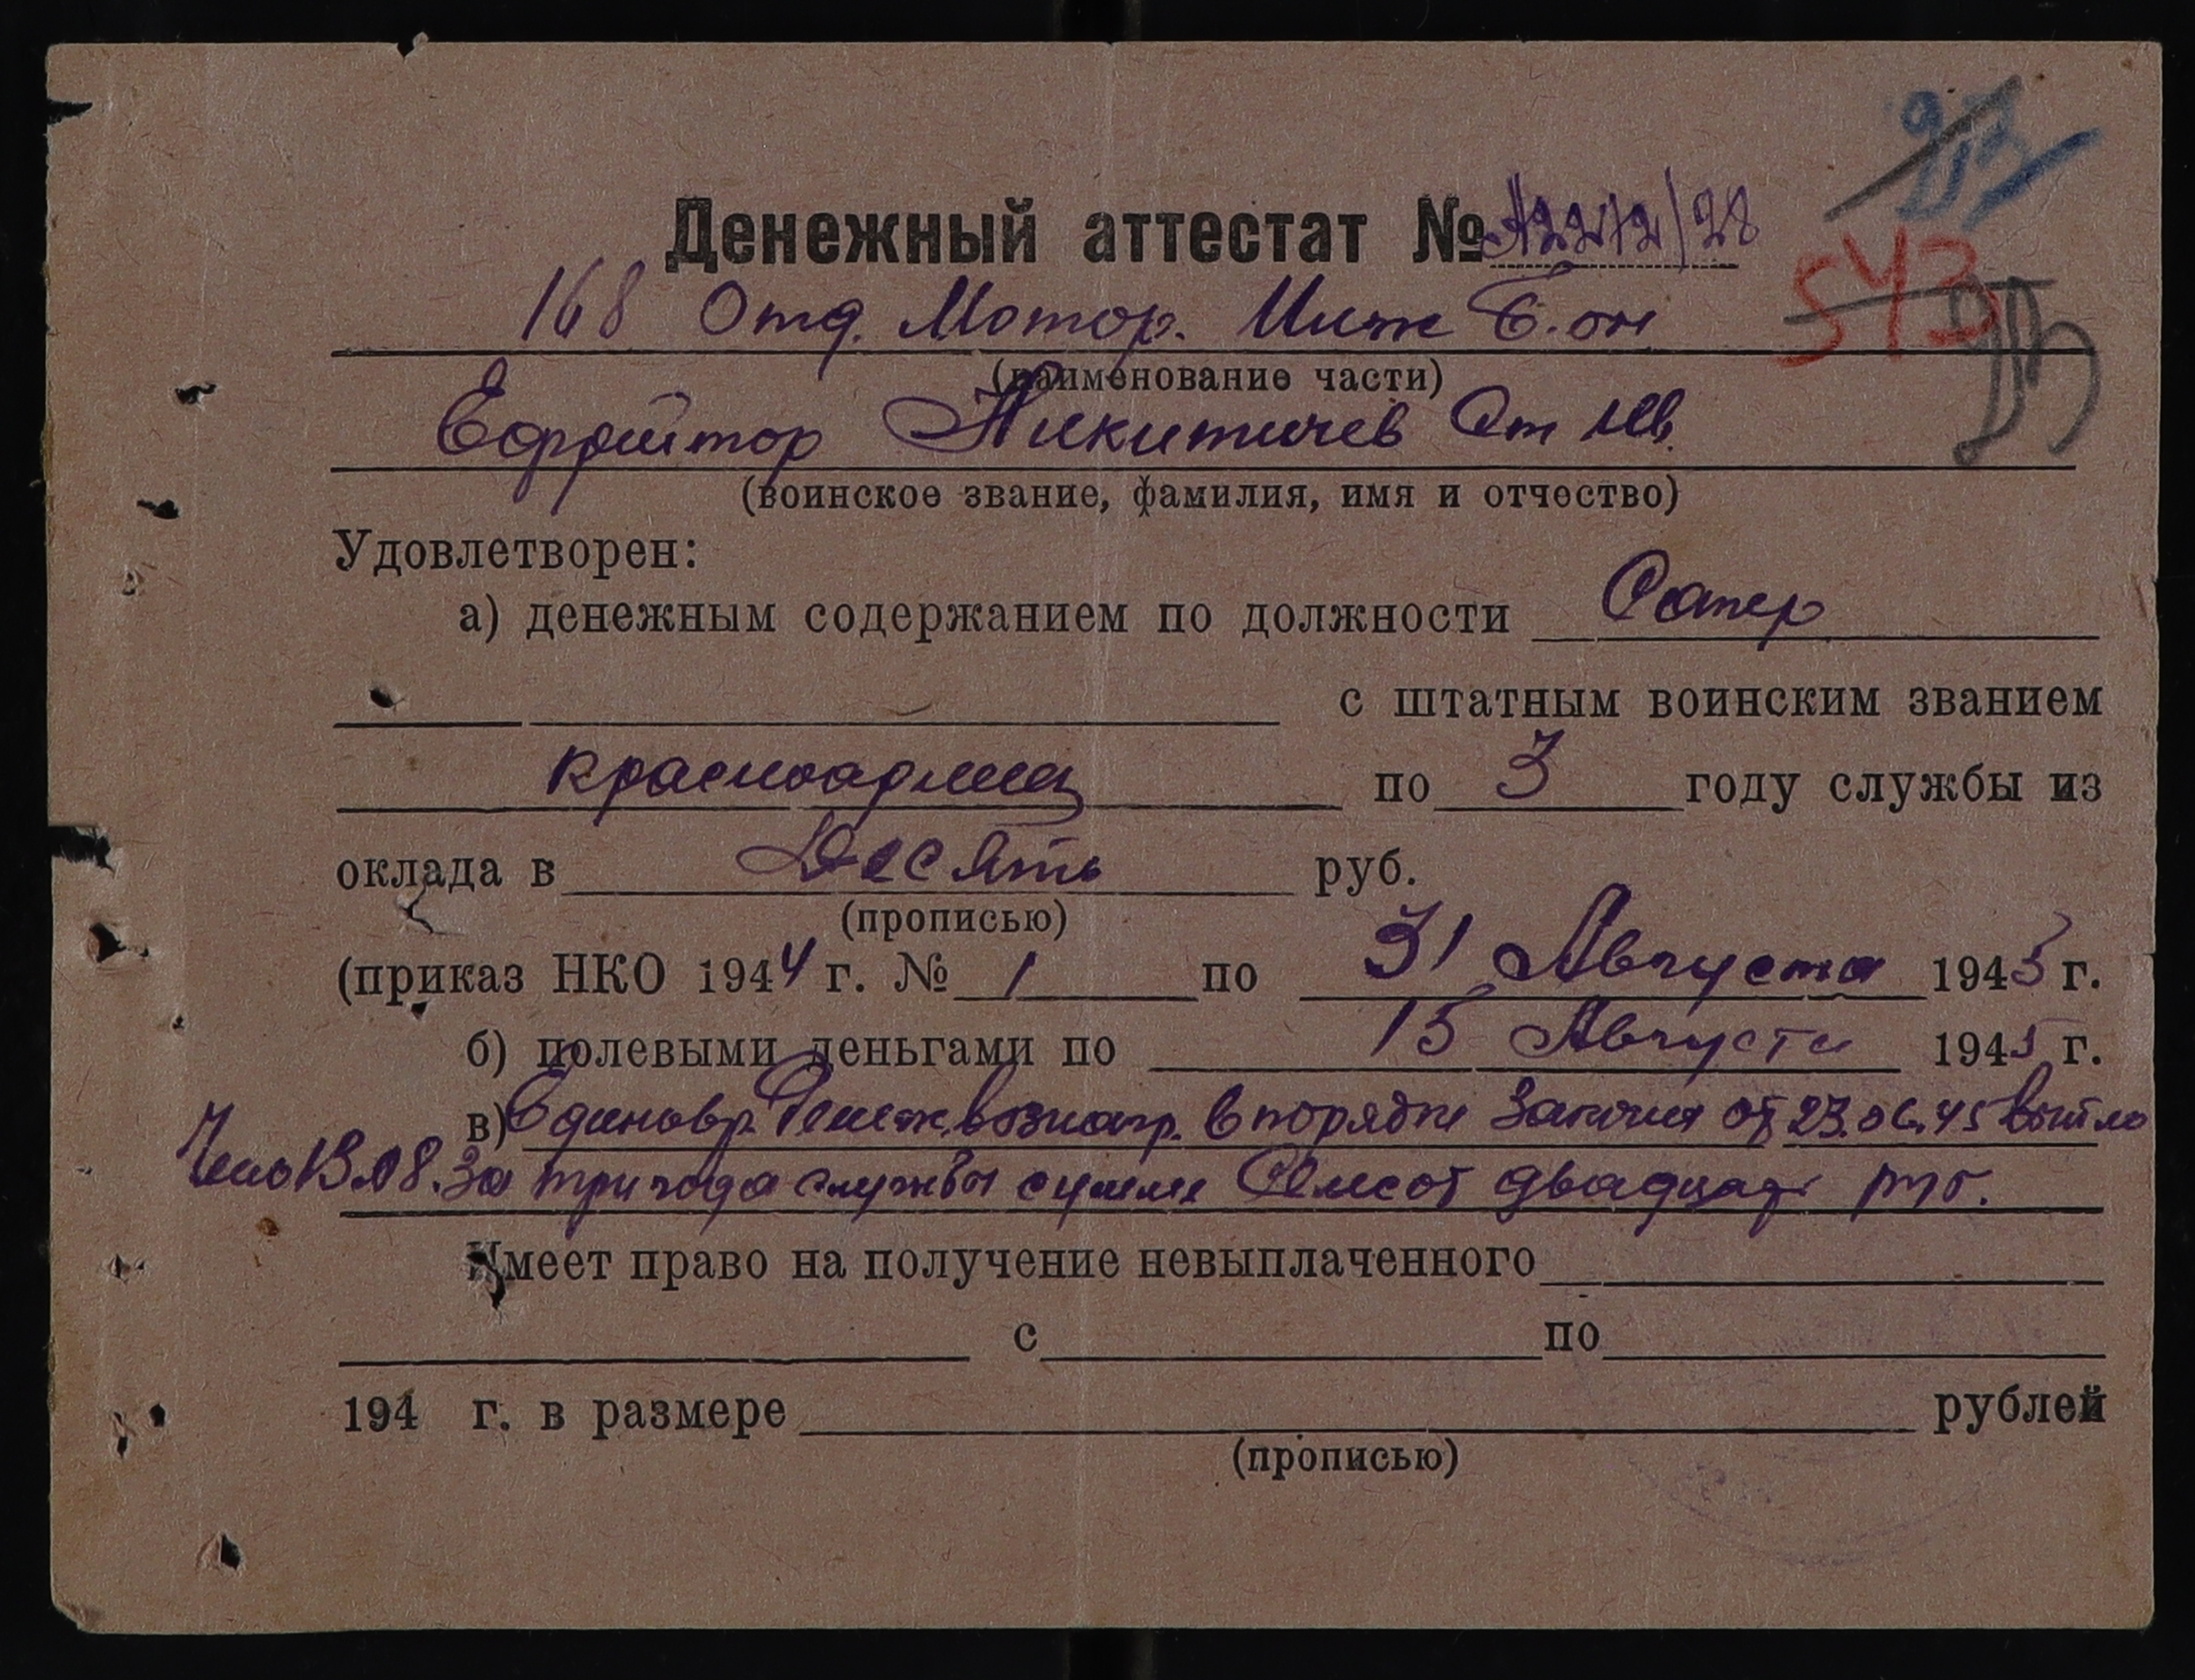 Денежный аттестат № А2272/28
543
168 Отд. Мотор. Инж Б.он
(наименование части)
Ефрейтор Никитичев Ст Ив.
(воинское звание, фамилия, имя и отчество)
Удовлетворен:
а) денежным содержанием по должности Сапер
с штатным воинским званием
красноармеец по 3 году службы из
оклада в Десять руб.
(прописью)
(приказ НКО 1944 г. № 1 по 31 Августа 1945 г.
б) полевыми деньгами по 15 Августа 1945 г.
в) Единовр. Денеж. вознагр. в порядке Закона от 23.06.45
13.08. За три года службы сумме Семсот двадцать руб.
Имеет право на получение невыплаченного
с по
194 г. в размере рублей
(прописью)